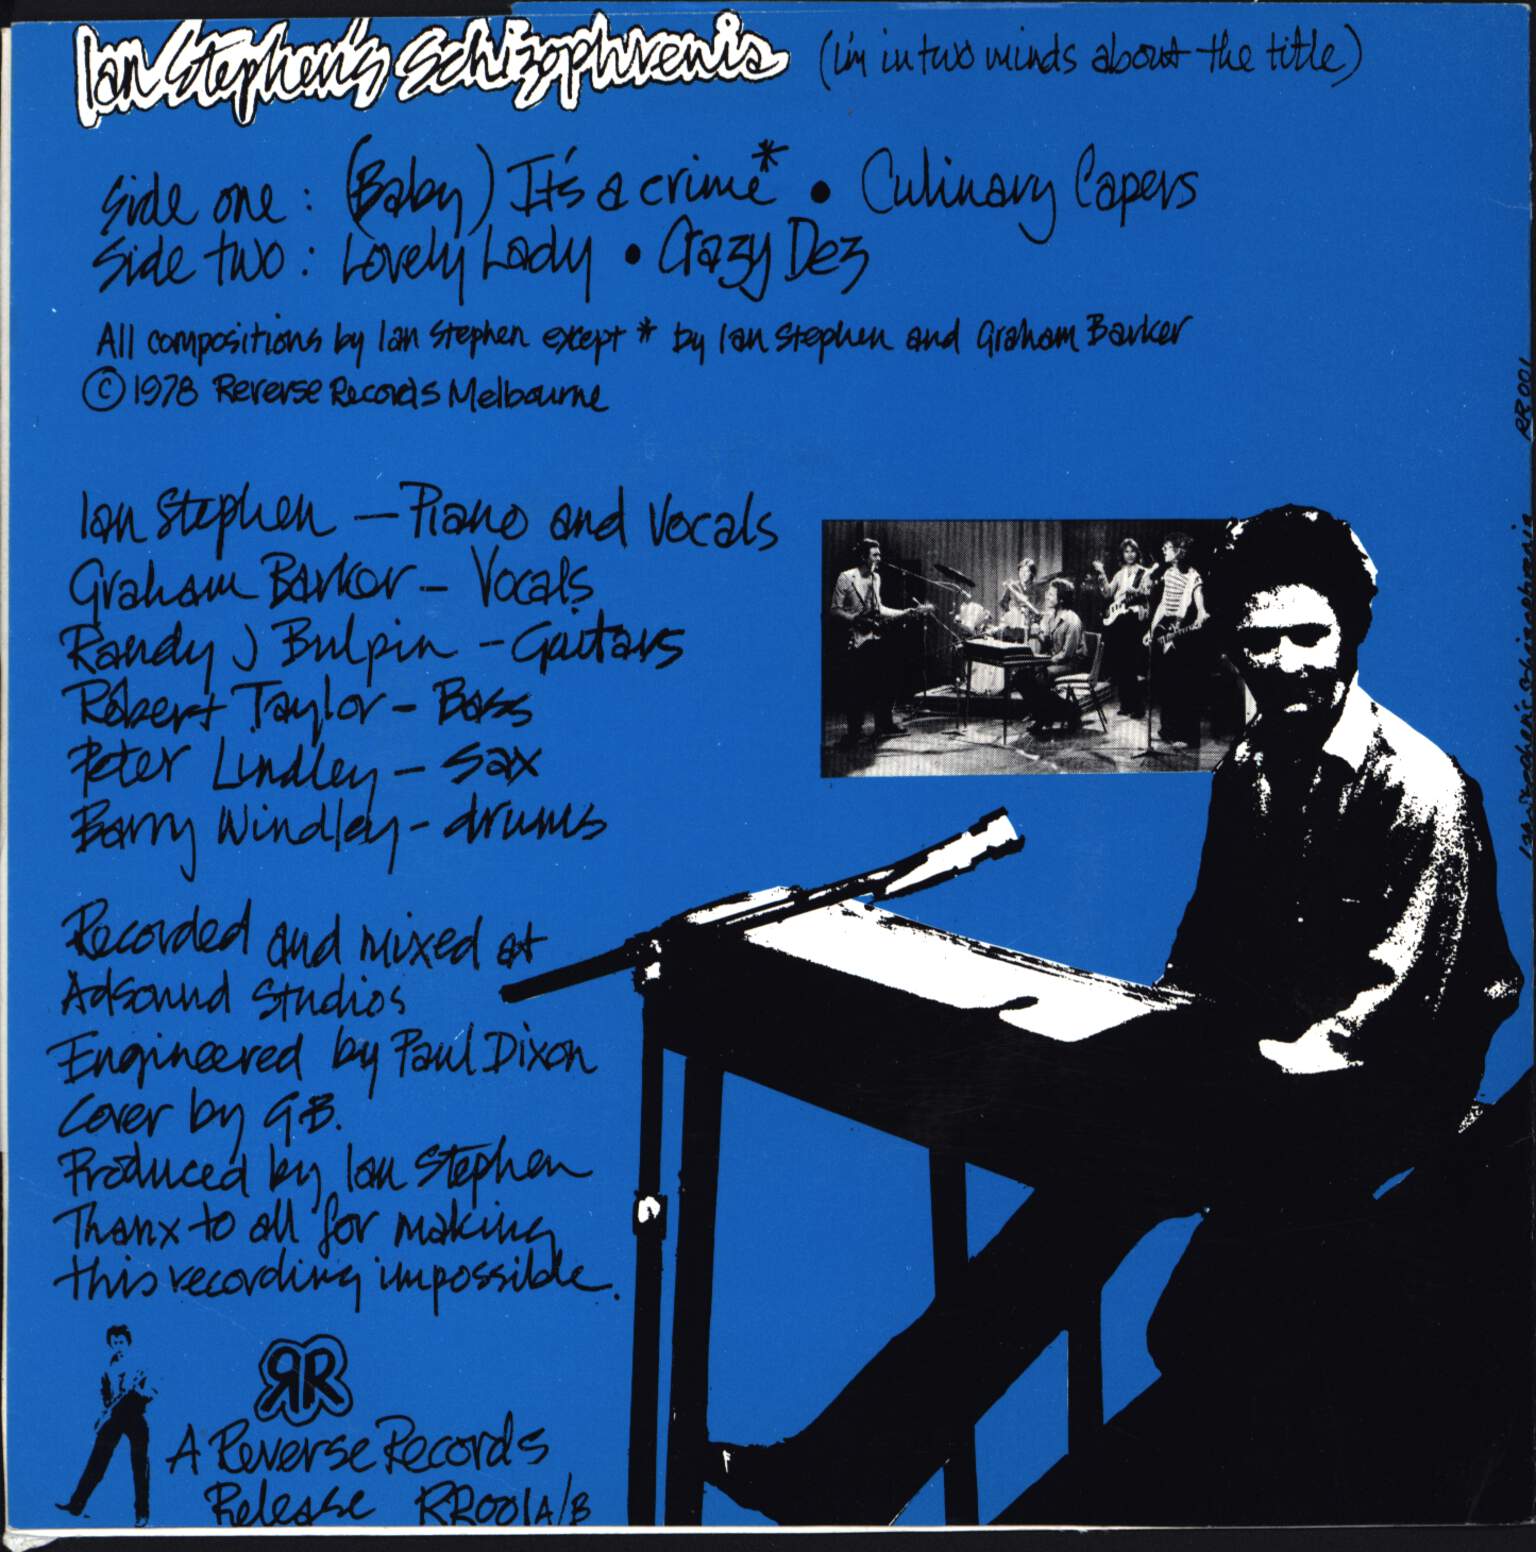 Ian Stephen's Schizophrenia (I'm in two minds about the title)
Side one : (Baby) It's a crime* • Culinary Capers
Side two : Lovely Lady • Crazy Dez
All compositions by Ian Stephen except * by Ian Stephen and Graham Barker
© 1978 Reverse Records Melbourne
Ian Stephen — Piano and Vocals
Graham Barker – Vocals
Randy J Bulpin – Guitars
Robert Taylor – Bass
Peter Lindley – Sax
Barry Windley – drums
Recorded and mixed at
Adsound Studios
Engineered by Paul Dixon
Cover by GB.
Produced by Ian Stephen
Thanx to all for making
this recording impossible.
RR
A Reverse Records
Release RR001A/B
RR001
Ian Stephen's Schizophrenia